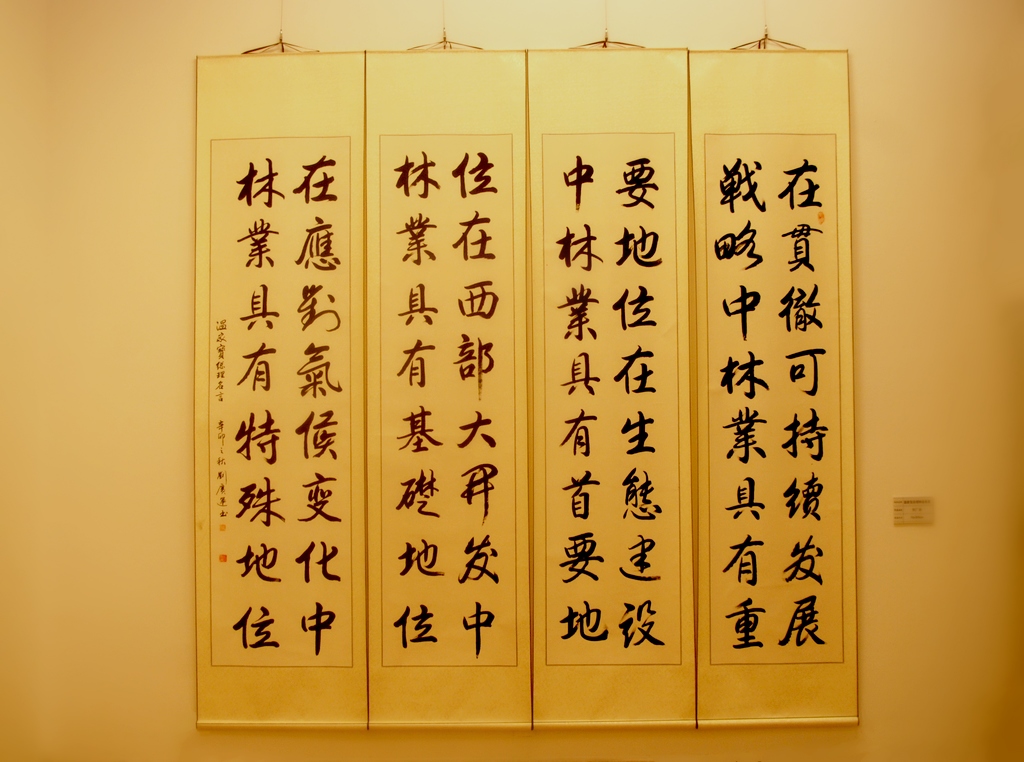 在貫徹可持續发展
戦略中林業具有重
要地位在生態建设
中林業具有首要地
位在西部大開发中
林業具有基礎地位
在應對氣候变化中
林業具有特殊地位
温家寶總理名言 辛卯之秋 劉廣運书